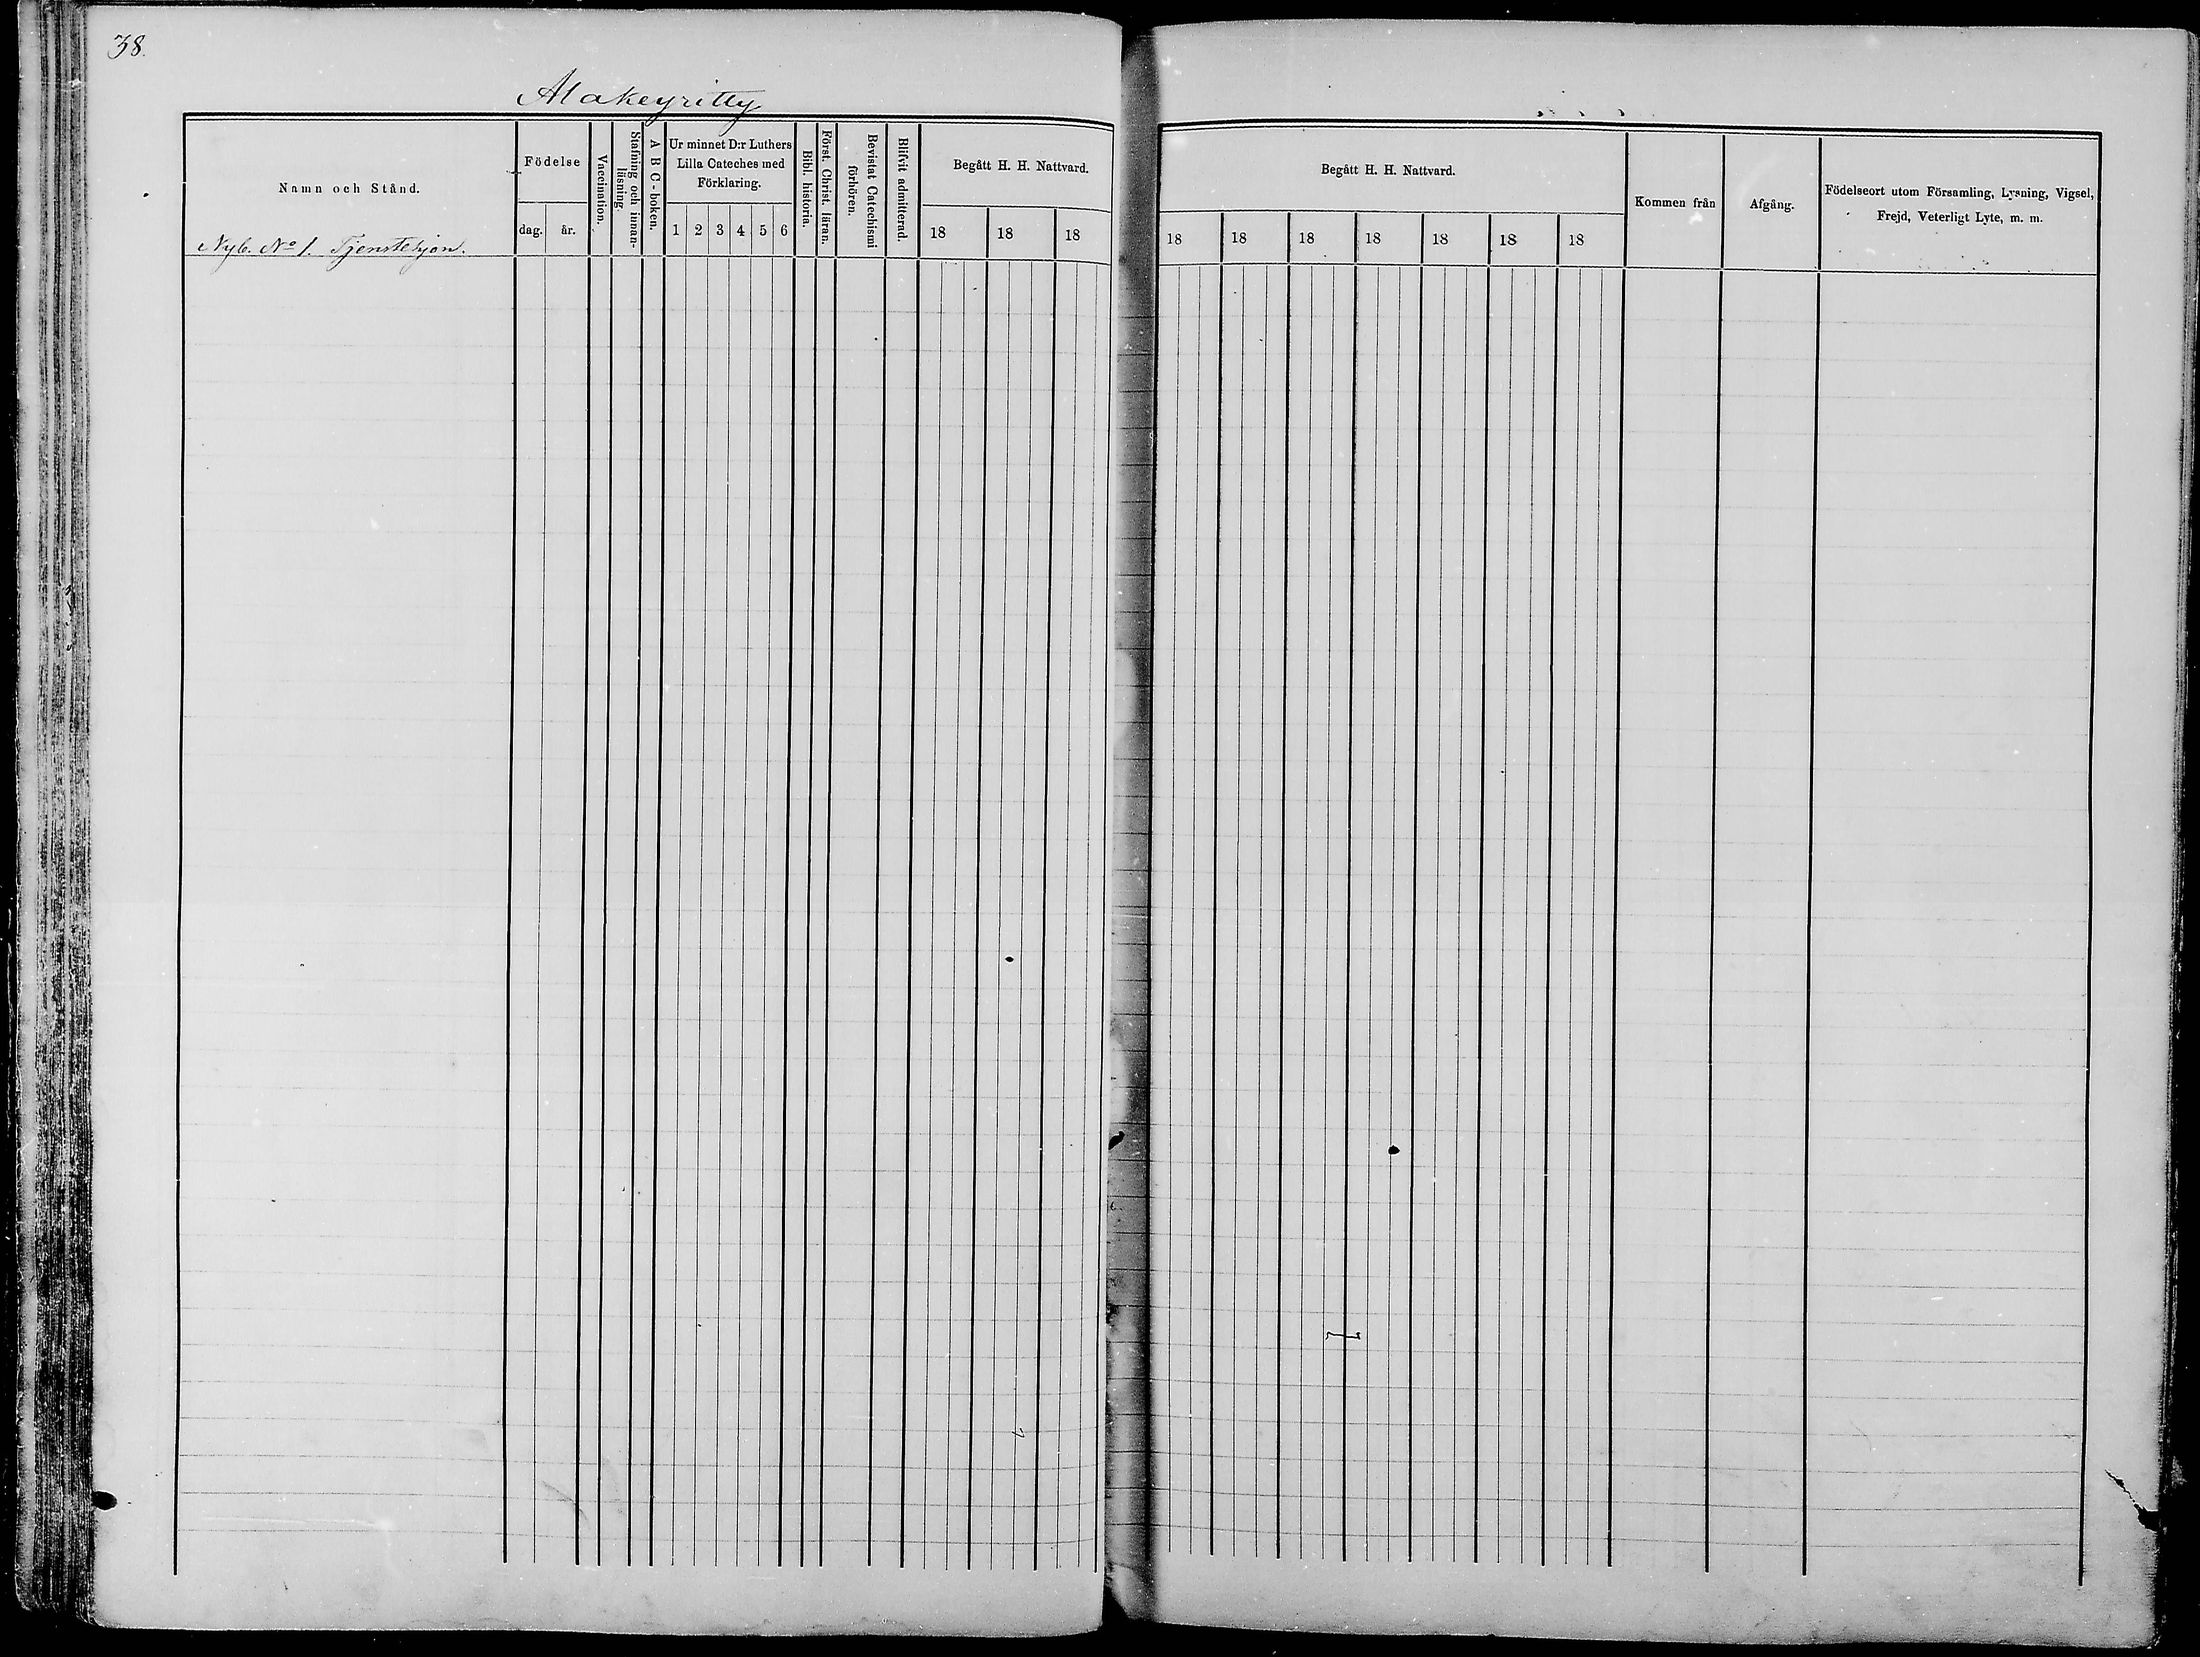 38.
Alakeyritty
Namn och Stånd.
Födelse
dag. år.
Vaccination.
Stafning och innan-
läsning.
A B C-boken.
Ur minnet D:r Luthers
Lilla Cateches med
Förklaring.
1 2 3 4 5 6
Bibl. historia.
Först. Christ. läran.
Bevistat Catechismi
förhören.
Blifvit admitterad.
Begått H. H. Nattvard.
18 18 18
Nyb. No 1. Tjenstehjon.
Begått H. H. Nattvard.
18 18 18 18 18 18 18
Kommen från
Afgång.
Födelseort utom Församling, Lysning, Vigsel,
Frejd, Veterligt Lyte, m. m.